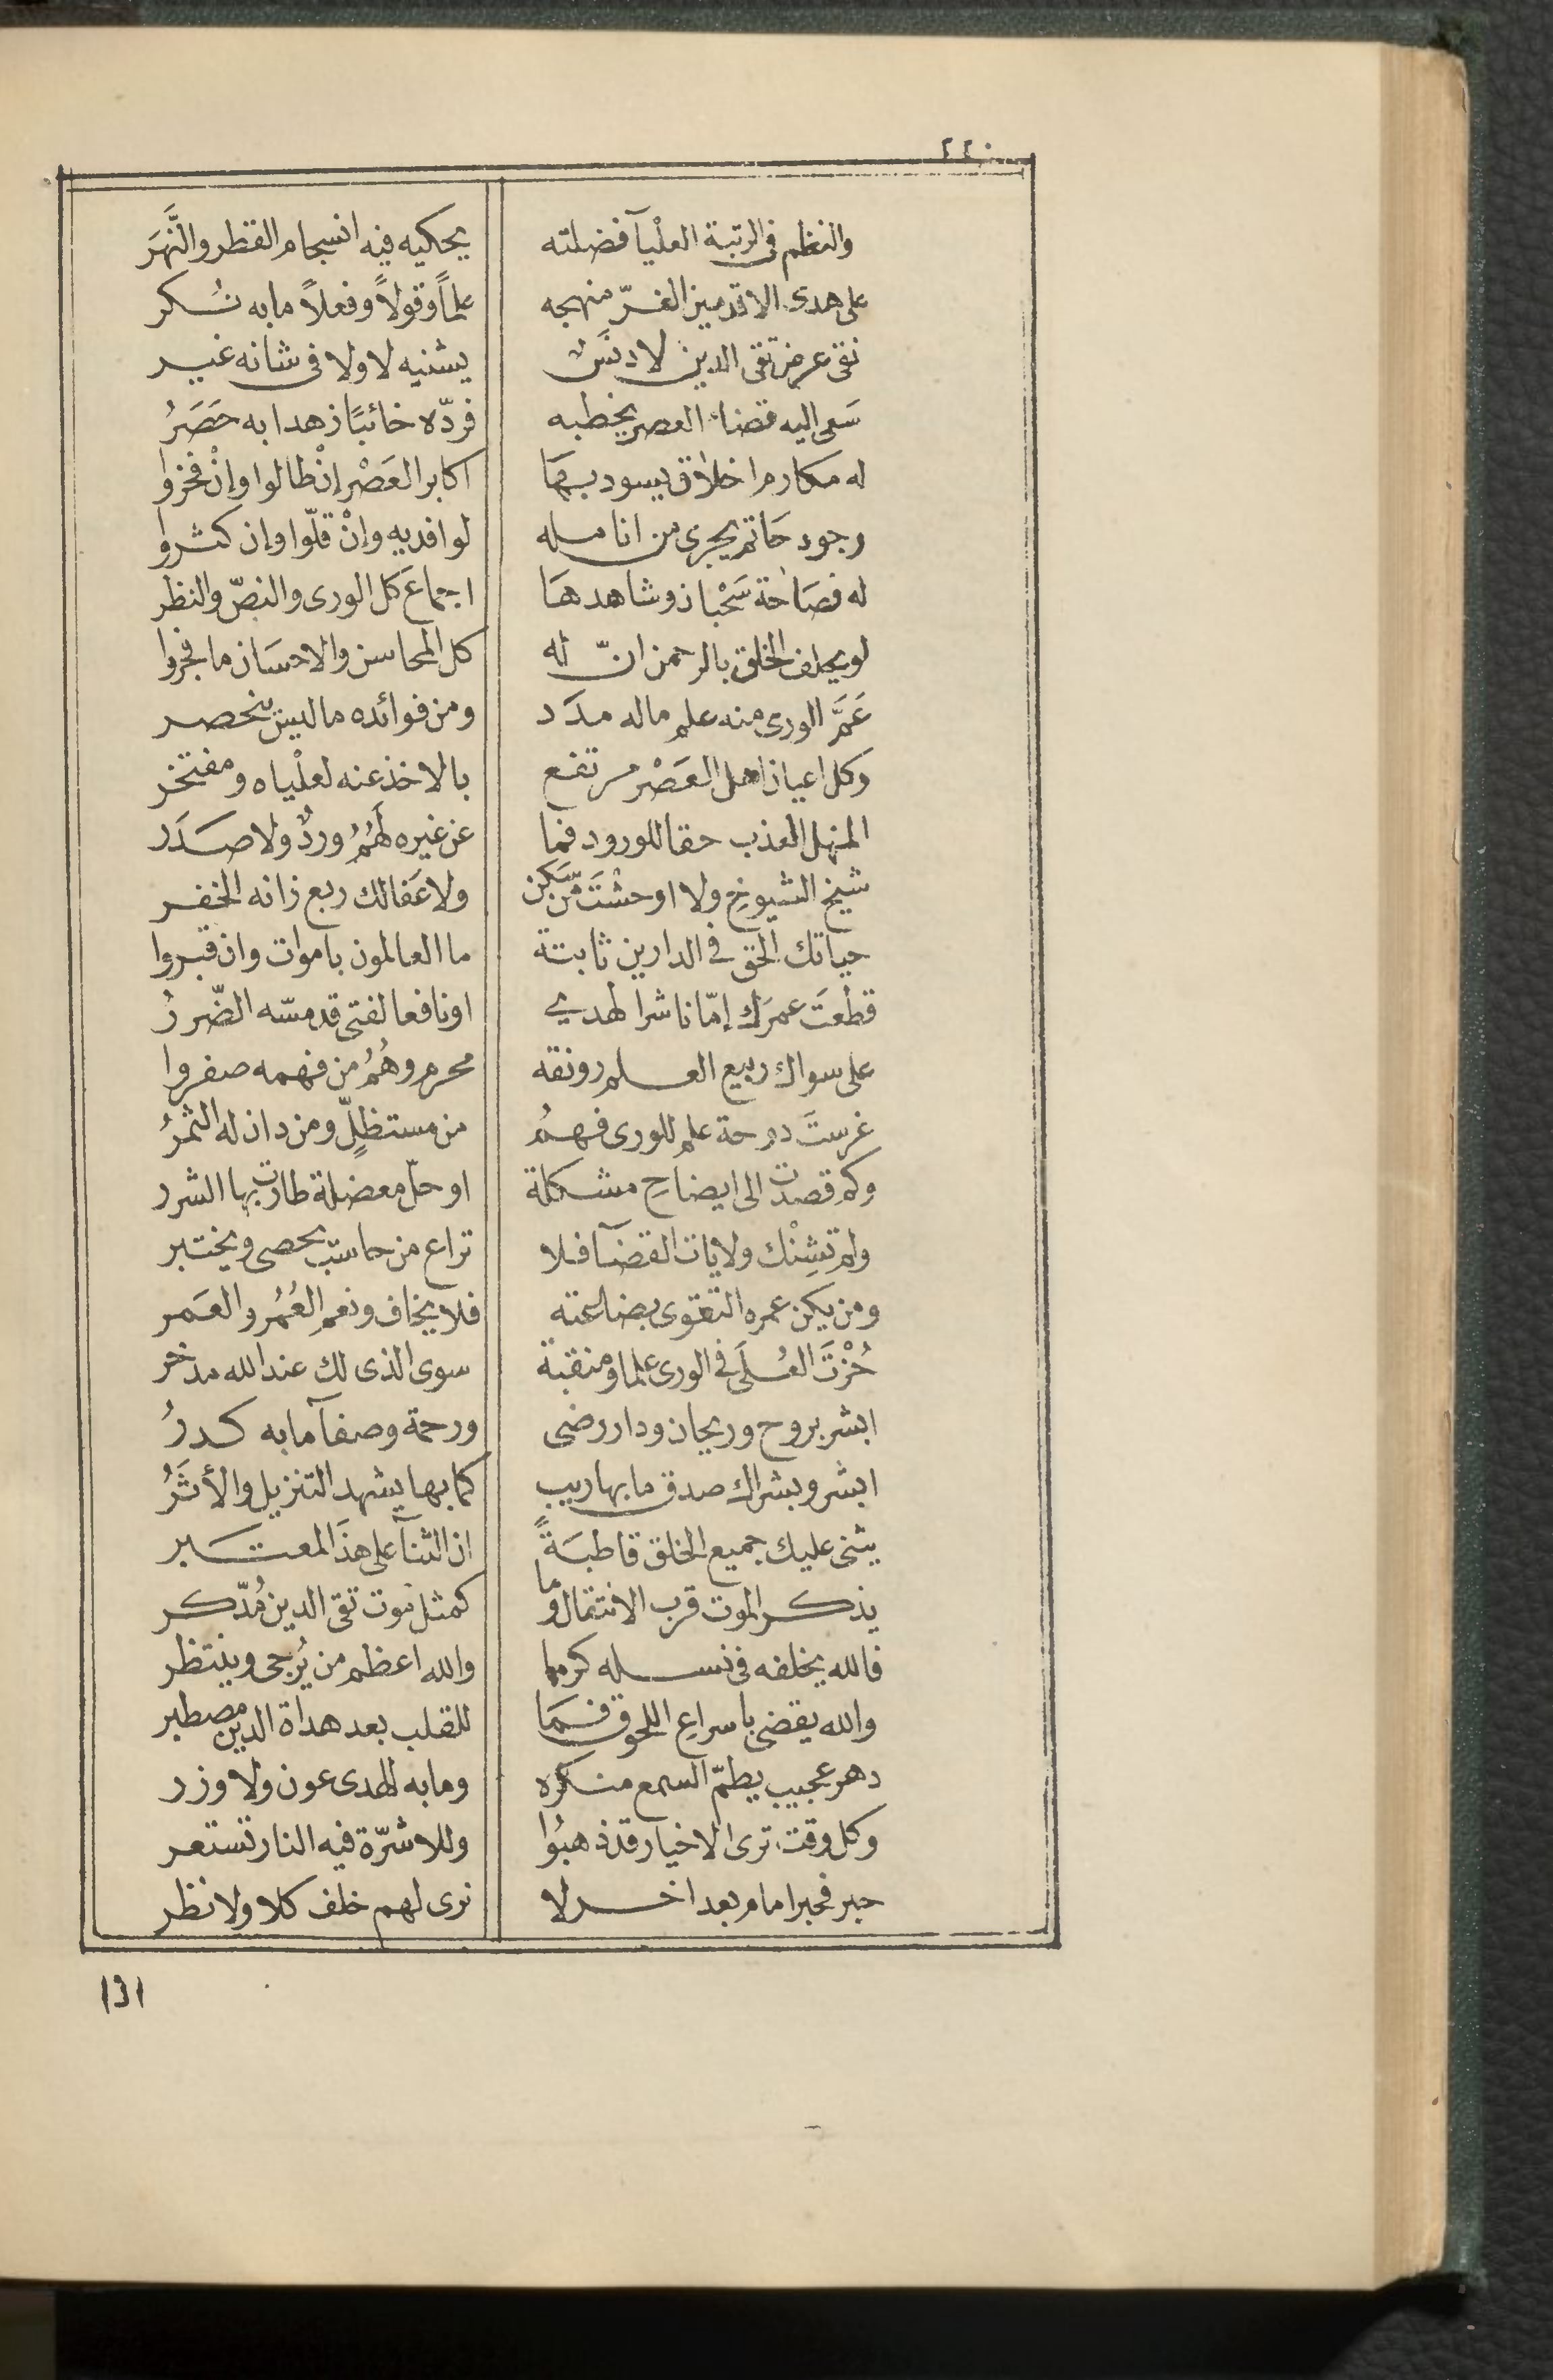 ٢٢٠
والنظم في الرتبة العلْيآ فضلته يحكيه فيه انسجام القطر والنَّهَر
على هدى الاقدمين الغرّ منهجه علماً وقولاً وفعلاً ما به نُسكر
نقى عرض تقى الدين لا دنسَ يشنيه لا ولا فى شانه غير
سَعى اليه قضاء العصر يخطبه فردّه خائبًا زهدا به حَصَرُ
له مكارم اخلاق يسود بهَا اكابر العَصْر إنْ طالوا وإنْ فخروا
وجود حَاتم يجرى من انامله لوافديه وإنْ قلّوا وإن كثروا
له فصَاحة سَحْبان وشاهدهَا اجماعَ كل الورى والنصّ والنظر
لو يحلف الخلق بالرحمن انّ له كل المحاسن والاحسَان ما فجروا
عَمَّ الورى منه علم ماله مدَد ومن فوائده ما ليس ينحصر
وكل اعيان اهل العَصْر مرتفع بالاخذ عنه لعلْياه ومفتخر
المنهل العذب حقا للورود فما عن غيره لَهُمُ وردٌ ولا صدَر
شيخ الشيوخِ ولا اوحشْتَ من سَكن ولا عَفا لك ربع زانه الخفر
حياتك الحق في الدارين ثابتة ما العالمون باموات وان قبروا
قطعَت عمرَك إمّا ناشرا لهدي اونافعا لفتى قد مسّه الضّررُ
على سواك ربيع العلم رونقه محرم وهُمُ من فهمه صفروا
غرستَ دوحة علم للورى فهمُ من مستظلٍّ ومن دان له الثمرُ
وكم قصدت الى ايضاحِ مشكلة او حلّ معضلة طارت بها الشرر
ولم تشِنْك ولايات القضآ فلا تراع من حاسبٍ يحصى ويختبر
ومن يكن عمره التقوى بضاعته فلا يخاف ونعم العُمُر والعَمر
حُزْتَ العُلَى فى الورى علما ومنقبة سوى الذى لك عند الله مدخر
ابشر بروح وريحان ودار رضى ورحمة وصفآ ما به كدرُ
ابشر وبشراك صدق ما بها ريب كما بها يشهد التنزيل والأثَرُ
يثنى عليك جميع الخلق قاطبَةً ان الثنآ على هذَا لمعتبر
يذكر الموت قرب الانتقال وما كمثل موت تقى الدين مُدّكر
فالله يخلفه فى نسله كرما والله اعظم من يُرجى وينتظر
والله يقضى باسراعِ اللحوق فمَا للقلب بعد هداة الدين مصطبر
دهر عجيب يطمّ السمع منكره وما به للهدى عون ولا وزر
وكل وقت ترى الاخيار قد ذهبُوا وللاشرّة فيه النار تستعر
حبر فحبر امام بعد اخر لا نرى لهم خلف كلا ولا نظر